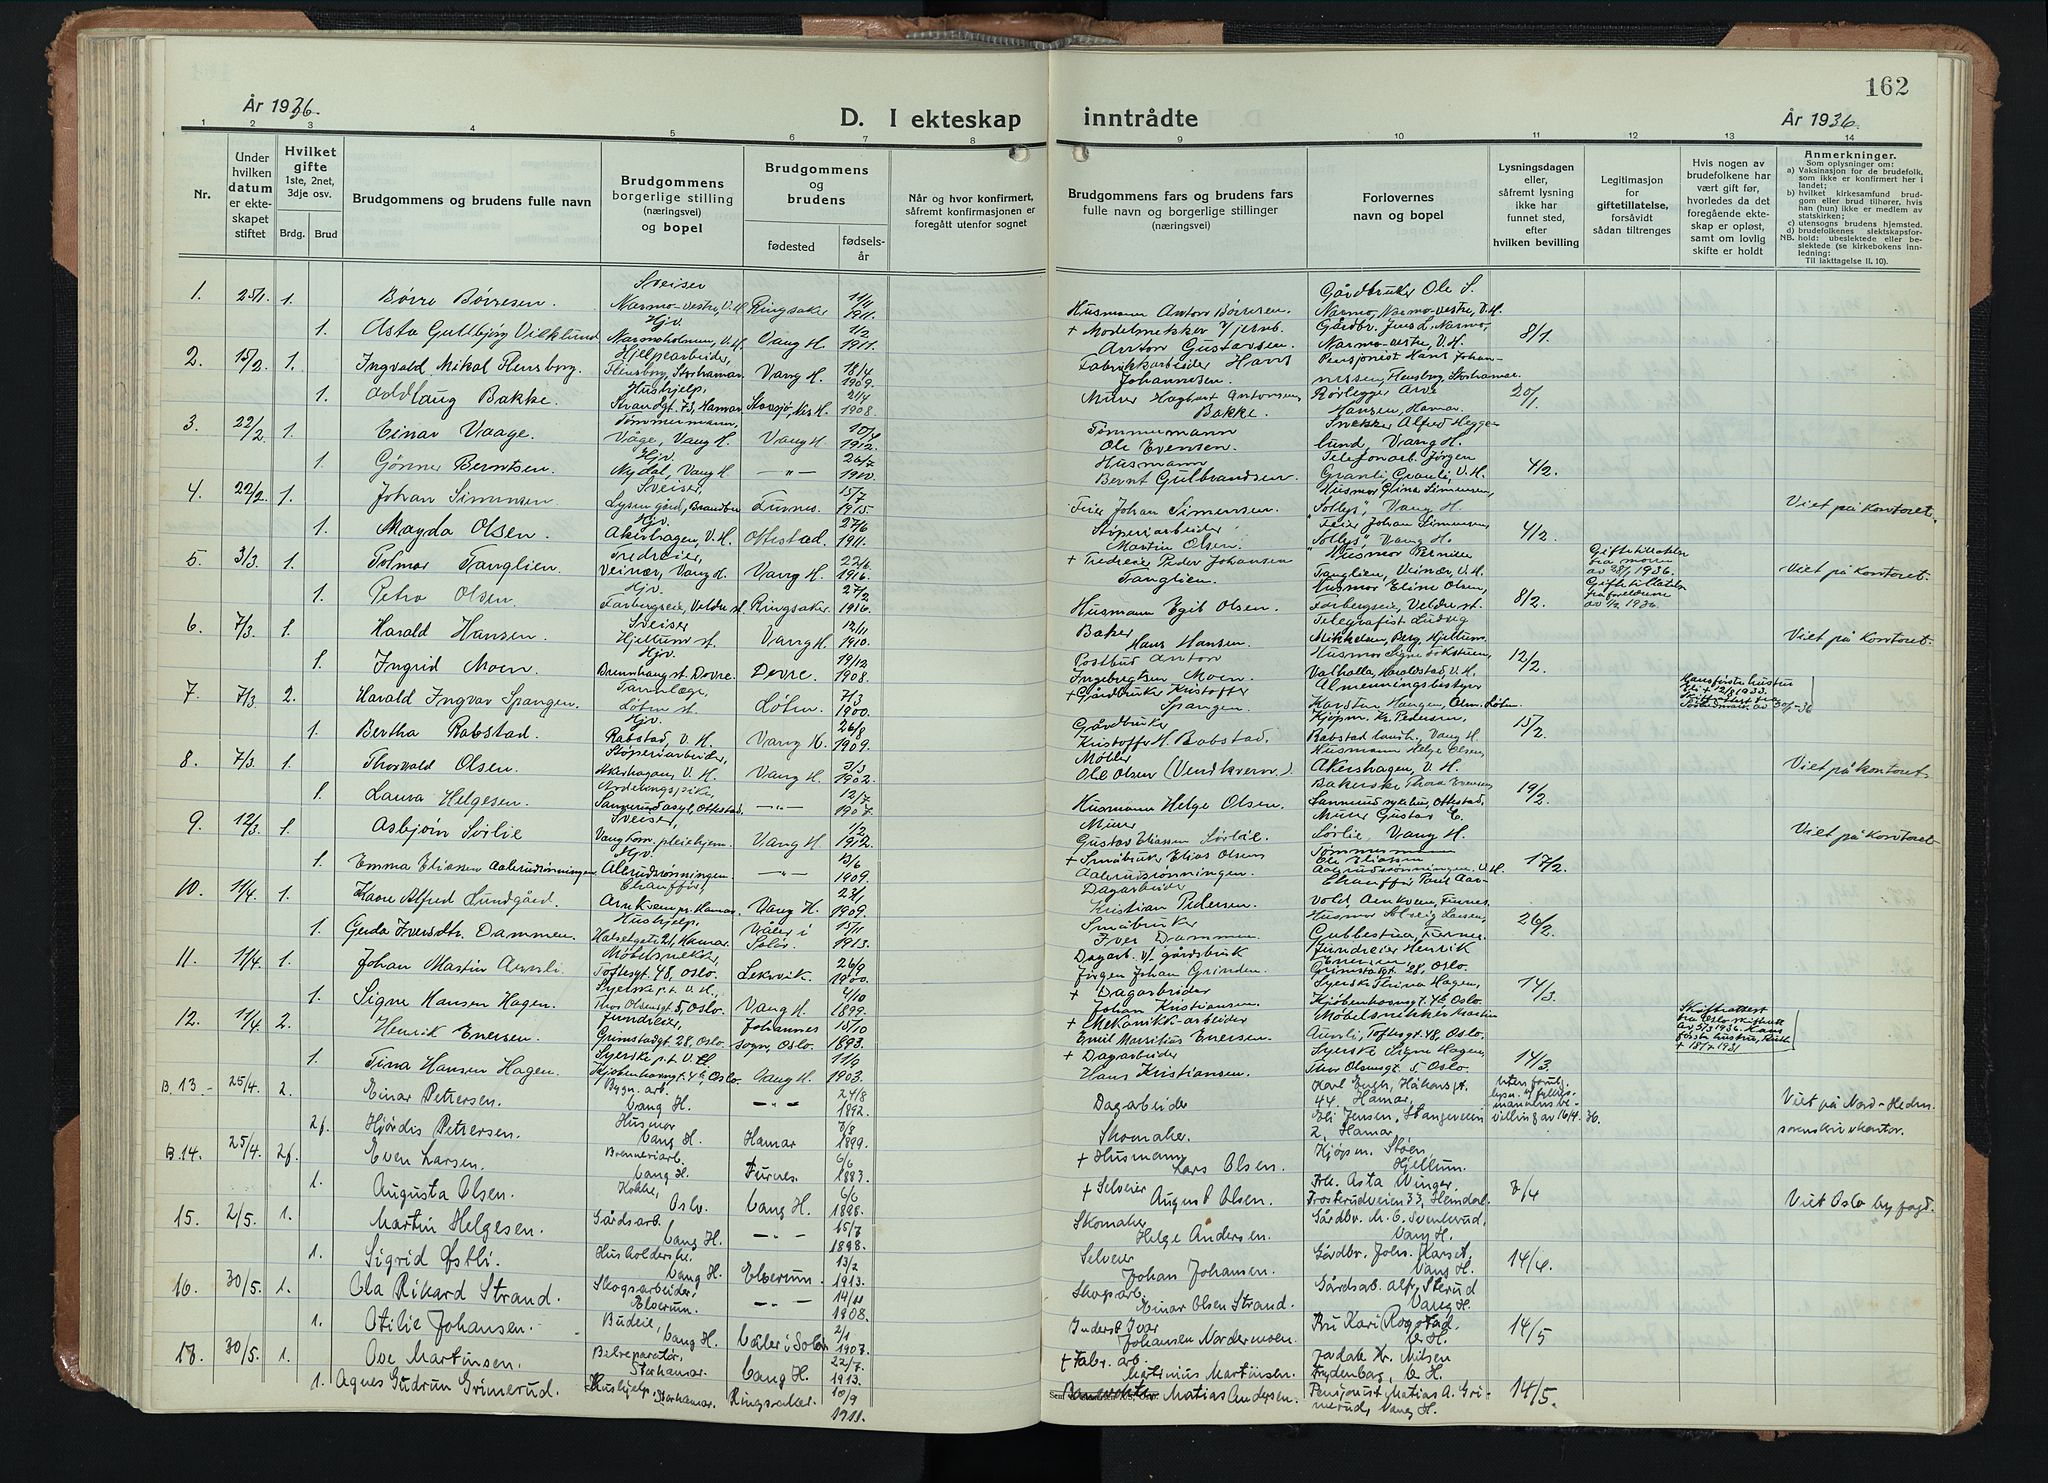 162
År 1936.
D. I ekteskap inntrådte
År 1936.
1 2 3 4 5 6 7 8 9 10 11 12 13 14
Nr.
Under hvilken datum er ekteskapet stiftet
Hvilket gifte 1ste, 2net, 3dje osv.
Brdg. Brud
Brudgommens og brudens fulle navn
Brudgommens borgerlige stilling (næringsvei) og bopel
Brudgommens og brudens
fødested
fødselsår
Når og hvor konfirmert, såfremt konfirmasjonen er foregått utenfor sognet
Brudgommens fars og brudens fars fulle navn og borgerlige stillinger (næringsvei)
Forlovernes navn og bopel
Lysningsdagen eller, såfremt lysning ikke har funnet sted, efter hvilken bevilling
Legitimasjon for giftetillatelse, forsåvidt sådan tiltrenges
Hvis nogen av brudefolkene har vært gift før, hvorledes da det foregående ekteskap er opløst, samt om lovlig skifte er holdt
Anmerkninger.
Som oplysninger om:
a) Vaksinasjon for de brudefolk, som ikke er konfirmert her i landet;
b) hvilket kirkesamfund brudgom eller brud tilhører, hvis han (hun) ikke er medlem av statskirken;
c) utensogns brudens hjemsted.
d) brudefolkenes slektskapsforhold: ubeslektede eller beslektede (se kirkebokens innledning:
NB. Til iakttagelse II. 10).
1. 25/1. 1. Børre Børresen. Sveiser Narmo-vestre, V. H. Ringsaker 1911. Husmann Anton Børresen. Gårdbruker Ole S. Narmo, Narmo-vestre, V. H.
1. Asta Gullbjørg Vicklund Hjv. Narmoholmen, V. H. Vang H. 1/2 1911. + Modelsnekker v/ jernv. Anton Gustavsen. Gårdbr. Jens L. Narmo, Narmo-vestre, V. H. 8/1
2. 15/2. 1. Ingvald Mikal Flensborg. Hjelpearbeider, Flensborg, Storhamar Vang H. 18/4 1909. Fabrikkarbeider Hans Johannesen. Pensjonist Hans Johannessen, Flensborg, Storhamar
1. Oddlaug Bakke. Hushjelp, Strandgt. 73, Hamar 21/4 1908. Murer Hagbart Antonsen Bakke. Rørlegger Arve Hansen, Hamar. 20/1
3. 22/2. 1. Einar Vaage. Tømmermann, Våge, Vang H. Vang H. 10/4 1912. Tømmermann Ole Evensen. Snekker Alfred Heggelund, Vang H.
1. Gønner Berntsen. Hjv. Nydal, Vang H. —"— 26/7 Husmann Bernt Gulbrandsen. Telefonarb. Jørgen Granli, Granli, V. H. 4/2.
4. 22/2. 1. Johan Simensen Sveiser, Furnes. 15/7 1915 Feier Johan Simensen. Husmor Olina Simensen, Sollys, Vang H. Viet på kontoret.
1. Magda Olsen. Hjv. Akershagen, V. H. Ottestad. 27/6 1911. Støperiarbeider Martin Olsen. Feier Johan Simensen, "Sollys", Vang H. 4/2.
5. 3/3. 1. Tolmar Tanglien. Tredreier, Veinær, Vang H. Vang H. 22/6 1916. + Tredreier Peder Johansen Tanglien. Husmor Pernille Tanglien, Veinær, V. H. Giftetillatelse fra moren av 28/1 1936. Viet på kontoret.
1. Petra Olsen. Hjv. Farbergseie, Veldre st. Ringsaker 27/2 1916. Husmann Egil Olsen. Husmor Eline Olsen, Farbergseie, Veldre st. 8/2. Giftetillatelse fra foreldrene
6. 7/3. 1. Harald Hansen. Sveiser Hjellum st. Vang H. 12/11 1910. Baker Hans Hansen. Telegrafist Ludvig Mikkelsen, Berg, Hjellum. Viet på kontoret.
1. Ingrid Moen. Hjv. Brennhaug st. Dovre Dovre. 19/12 1908. Postbud Anton Ingebregtsen Moen. Valhalla, Haraldstad, V. H. 12/2
7. 7/3. 2. Harald Ingvar Spangen. Tannlæge, Løten st. Løten. 7/3 1900. + Gårdbruker Kristoffer Spangen. Almenningsbestyrer Karsten Haugen, Alm. Løten. Hans første hustru
1. Bertha Rabstad. Hjv. Rabstad, V. H. Vang H. 26/8 1909. Gårdbruker Kristoffer H. Rabstad. Kjøpm. Kr. Pedersen, Rabstad landh., Vang H. 15/2
8. 7/3. 1. Thorvald Olsen. Støperiarbeider, Akershagen, V. H. Vang H. 3/3 1902. Møller Ole Olsen (Vendkvern.) Husmann Helge Olsen, Akershagen, V. H. Viet på kontoret.
1. Laura Helgesen. Avdelingspike, Sanerud asyl, Ottestad —"— 12/7 1907. Husmann Helge Olsen. Bakerske Thora Evensen, Sanerud sykehus, Ottestad. 19/2.
9. 12/3. 1. Asbjørn Sørlie Sveiser, Vang kom. pleiehjem. Vang H. 1/2 1912. Murer Gustav Eliassen Sørlie. Murer Gustav E. Sørlie, Vang H. Viet på kontoret.
1. Emma Eliassen Aalerudrønningen Hjv. Alerudrønningen. —"— 13/6 1909. + Småbruker Elias Olsen Aalerudrønningen. Tømmermann Ole Eliassen 17/2.
10. 11/4. 1. Kaare Alfred Lundgård. Chauffør, Arnkvern pr. Hamar. Vang H. 23/1 1909. Dagarbeider Kristian Pedersen. Chauffør Paul Aavold, Arnkvern, Furnes.
1. Gerda Iversdtr. Dammen. Hushjelp, Hamar. Våler i Solør. 15/11 1913. Småbruker Iver Dammen. Husmor Solveig Larsen, Gubbestua, Furnes. 26/2.
11. 11/4. 1. Johan Martin Aunli. Møbelsnekker, Toftesgt. 48, Oslo. Leksvik. 26/9 1900. Dagarb. v/ gårdsbruk Jørgen Johan Grinden. Jundreier Henrik Enersen, Grimstadgt. 28, Oslo.
1. Signe Hansen Hagen. Syerske p.t. V. H., Thor Olsensgt. 5, Oslo. Vang H. 4/10 1899. + Dagarbeider Johan Kristiansen. Syerske Trina Hagen, Kjøbenhavnsgt. 4b Oslo. 14/3.
12. 11/4. 2. Henrik Enersen. Grimstadgt. 28, Oslo. Johannes sogn, Oslo. 15/10 1893. + Mekanikk-arbeider Emil Mauritius Enersen. Møbelsnekker Martin Aunli, Toftesgt. 48, Oslo. Skifteattest fra Oslo skifterett av 5/3 1936. Hans første hustru, Ruth + 18/7 1931
1. Tina Hansen Hagen. Syerske p.t. V. H. Kjøbenhavnsgt. 4b, Oslo. Vang H. 11/9 1903. + Dagarbeider Hans Kristiansen. Syerske Signe Hagen, Thor Olsensgt. 5 Oslo. 14/3.
B. 13 - 25/4. 2. Einar Petersen. Bygn. arb. Vang H. —"— 24/8 1892. Dagarbeider Karl Engh, Håkonsgt. 44, Hamar, Uten forutg. lysn. Viet på Nord-Hedm. sorenskriverkontor.
2f. Hjørdis Petersen. Husmor Vang H. Hamar 7/8 1899. Skomaker. Jensen, Stangeveien 2, Hamar
B. 14. 25/4. 2f. Even Larsen. Brenneriarb. Vang H. Furnes. 6/6 1883. + Husmann Lars Olsen. Kjøpm. Støen, Hjellum.
1. Augusta Olsen. Kokke, Oslo. Vang H. 6/6 1898. + Selveier August Olsen. Frk. Asta Winger, Prosterudveien 33, Heimdal. 7/4 Viet Oslo byfogd.
15. 2/5. 1. Martin Helgesen. Gårdsarb. Vang H. —"— 15/7 1898. Skomaker Helge Andersen. Gårdbr. M. O. Svenkerud, Vang H.
1. Sigrid Østli. Husholderske. Vang H. Elverum. 13/2 1913. Selveier Johan Johansen. Gårdbr. Johs. Karset, Vang H. 14/4.
16. 30/5. 1. Ola Rikard Strand. Skogsarbeider, Elverum. —"— 14/11 1908. Skogsarb. Einar Olsen Strand. Gårdsarb. Alf. Sterud Vang H.
1. Otilie Johansen. Budeie, Vang H. Våler i Solør 2/1 1907. Inderst Ivar Johansen Nordermoen. Fru Kari Rogstad, V. H. 14/5
17. 30/5. 1. Ose Martinsen. Bilreparatør, Storhamar. Vang H. 22/7 1913. + Fabr. arb. Martinius Martinsen. Kr. Nilsen Frydenberg, V. H.
1. Agnes Gudrun Grimerud. Hushjelp, Storhamar. Ringsaker. 10/9 1911. Matias Andersen. Pensjonist Matias A. Grimerud, Vang H. 14/5.